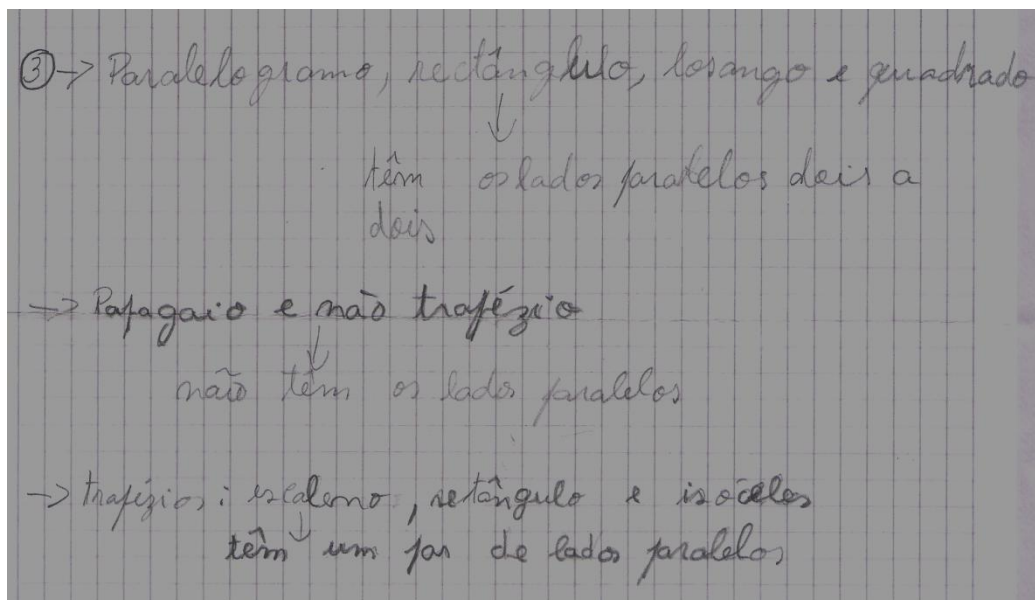 ③→ Paralelogramo, rectângulo, losango e quadrado
têm os lados paralelos dois a
dois
→ Papagaio e não trapézio
não têm os lados paralelos
→ trapézios: escaleno, retângulo e isóceles
têm um par de lados paralelos